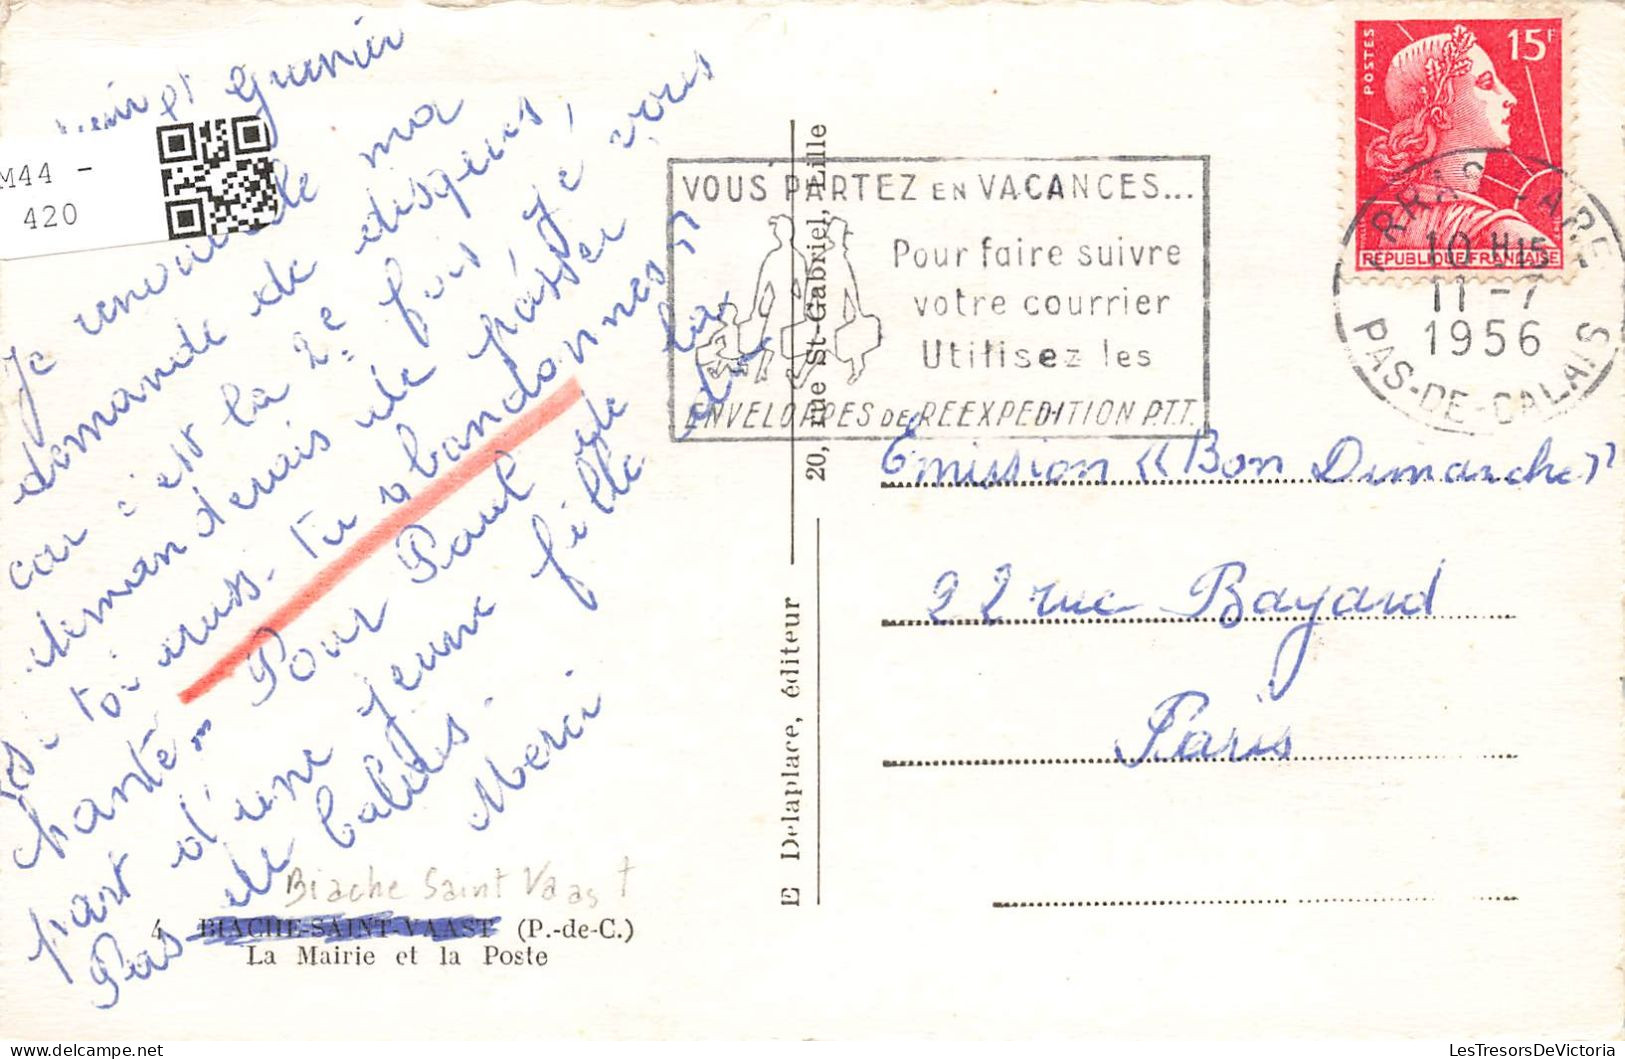 et Grenier
Je renouvelle ma
demande de disques,
car c'est la 2e fois je vous
demanderais de passer
si toi aussi tu abandonnes"
chanté Pour Paul de la
part d'une jeune fille du
Pas de Calais.
Merci
Biache Saint Vaast
4 BIACHE-SAINT-VAAST (P.-de-C.)
La Mairie et la Poste
M44 -
420
E Delaplace, éditeur
20, rue St-Gabriel, Lille
VOUS PARTEZ EN VACANCES...
Pour faire suivre
votre courrier
Utilisez les
ENVELOPPES DE REEXPEDITION P.T.T.
POSTES
15F
REPUBLIQUE FRANÇAISE
ARRAS GARE
10 H15
11 -7
1956
PAS-DE-CALAIS
Emission «Bon Dimanche"
22 rue Bayard
Paris
delcampe.net
LesTresorsDeVictoria